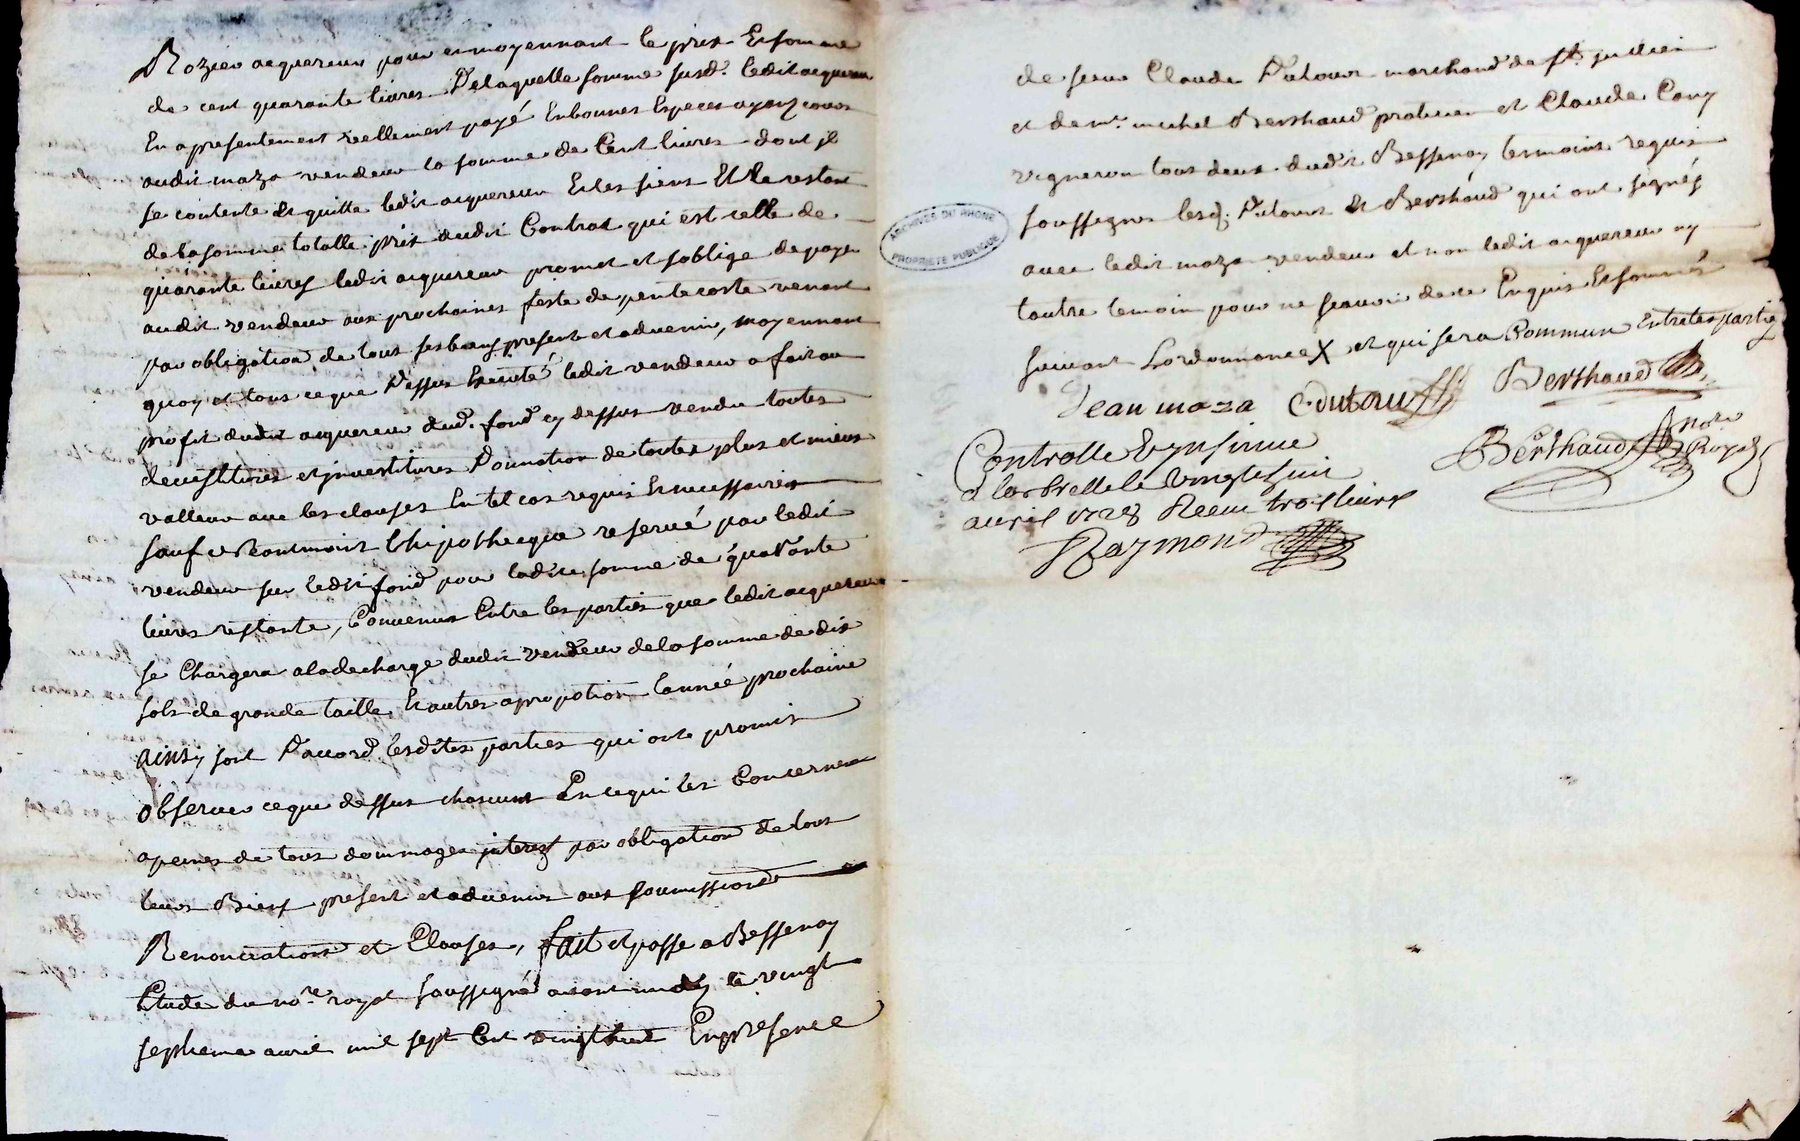 Rozier acquereur pour et moyennant le prix Et somme
de cent quarante livres De laquelle somme susd. ledit acquereur
En a presentement reellement payé En bonnes Especes ayant cours
audit maza vendeur la somme de Cent livres dont il
se contente et quitte ledit acquereur Et les siens Et le restant
de la somme totalle prix dudit Contrat qui est celle de
quarante livres ledit acquereur promet et s'oblige de payer
audit vendeur aux prochaines feste de pentecoste venant
par obligation de tous ses biens present et advenir, moyennant
quoy et tous ce que Dessus Executé ledit vendeur a fait au
profit dudit acquereur dud. fond cy dessus vendu toutes
devestitures et investitures Donnation de toutes plus et mieux
valleur avec les clauses En tel cas requis et necessaires
sauf et Neantmoins L'hipothecque reservé par ledit
vendeur sur ledit fond pour ladite somme de quarante
livres restante, Convenus Entre les parties que ledit acquereur
se Chargera a la decharge dudit vendeur de la somme de dix
sols de grande taille Et autres a propotion L'année prochaine
ainsy sont D'accord lesdites parties qui ont promis
observer ce que dessus chascuns En ce qui les Concernent
a peines de tous dommages interest par obligation de tous
leurs Biens present et advenirs aux soumissions
Renonciations et Clauses, fait et passe a Bessenay
Etude du no.re royal soussigné avant midy le vingt
septieme avril mil sept Cent vingt huit En presence
de sieur Claude Dutour marchand de st. jullien
et de mr. michel Berthaud praticien et Claude Cany
vigneron tous deux dudit Bessenay temoins requis
soussignes lesd. Dutour et Berthaud qui ont signés
avec ledit maza vendeur et non ledit acquereur ny
l'autre temoin pour ne scavoir de ce Enquis Et sommés
suivant L'ordonnance X et qui sera Commun Entre les parties
Jean maza C. dutour Berthaud
Berthaud no.re Royal
Controlle Et Insinue
a Larbrelle le vingt huit
avril 1728 Receu trois livres
Raymond
ARCHIVES DU RHONE
PROPRIÉTÉ PUBLIQUE